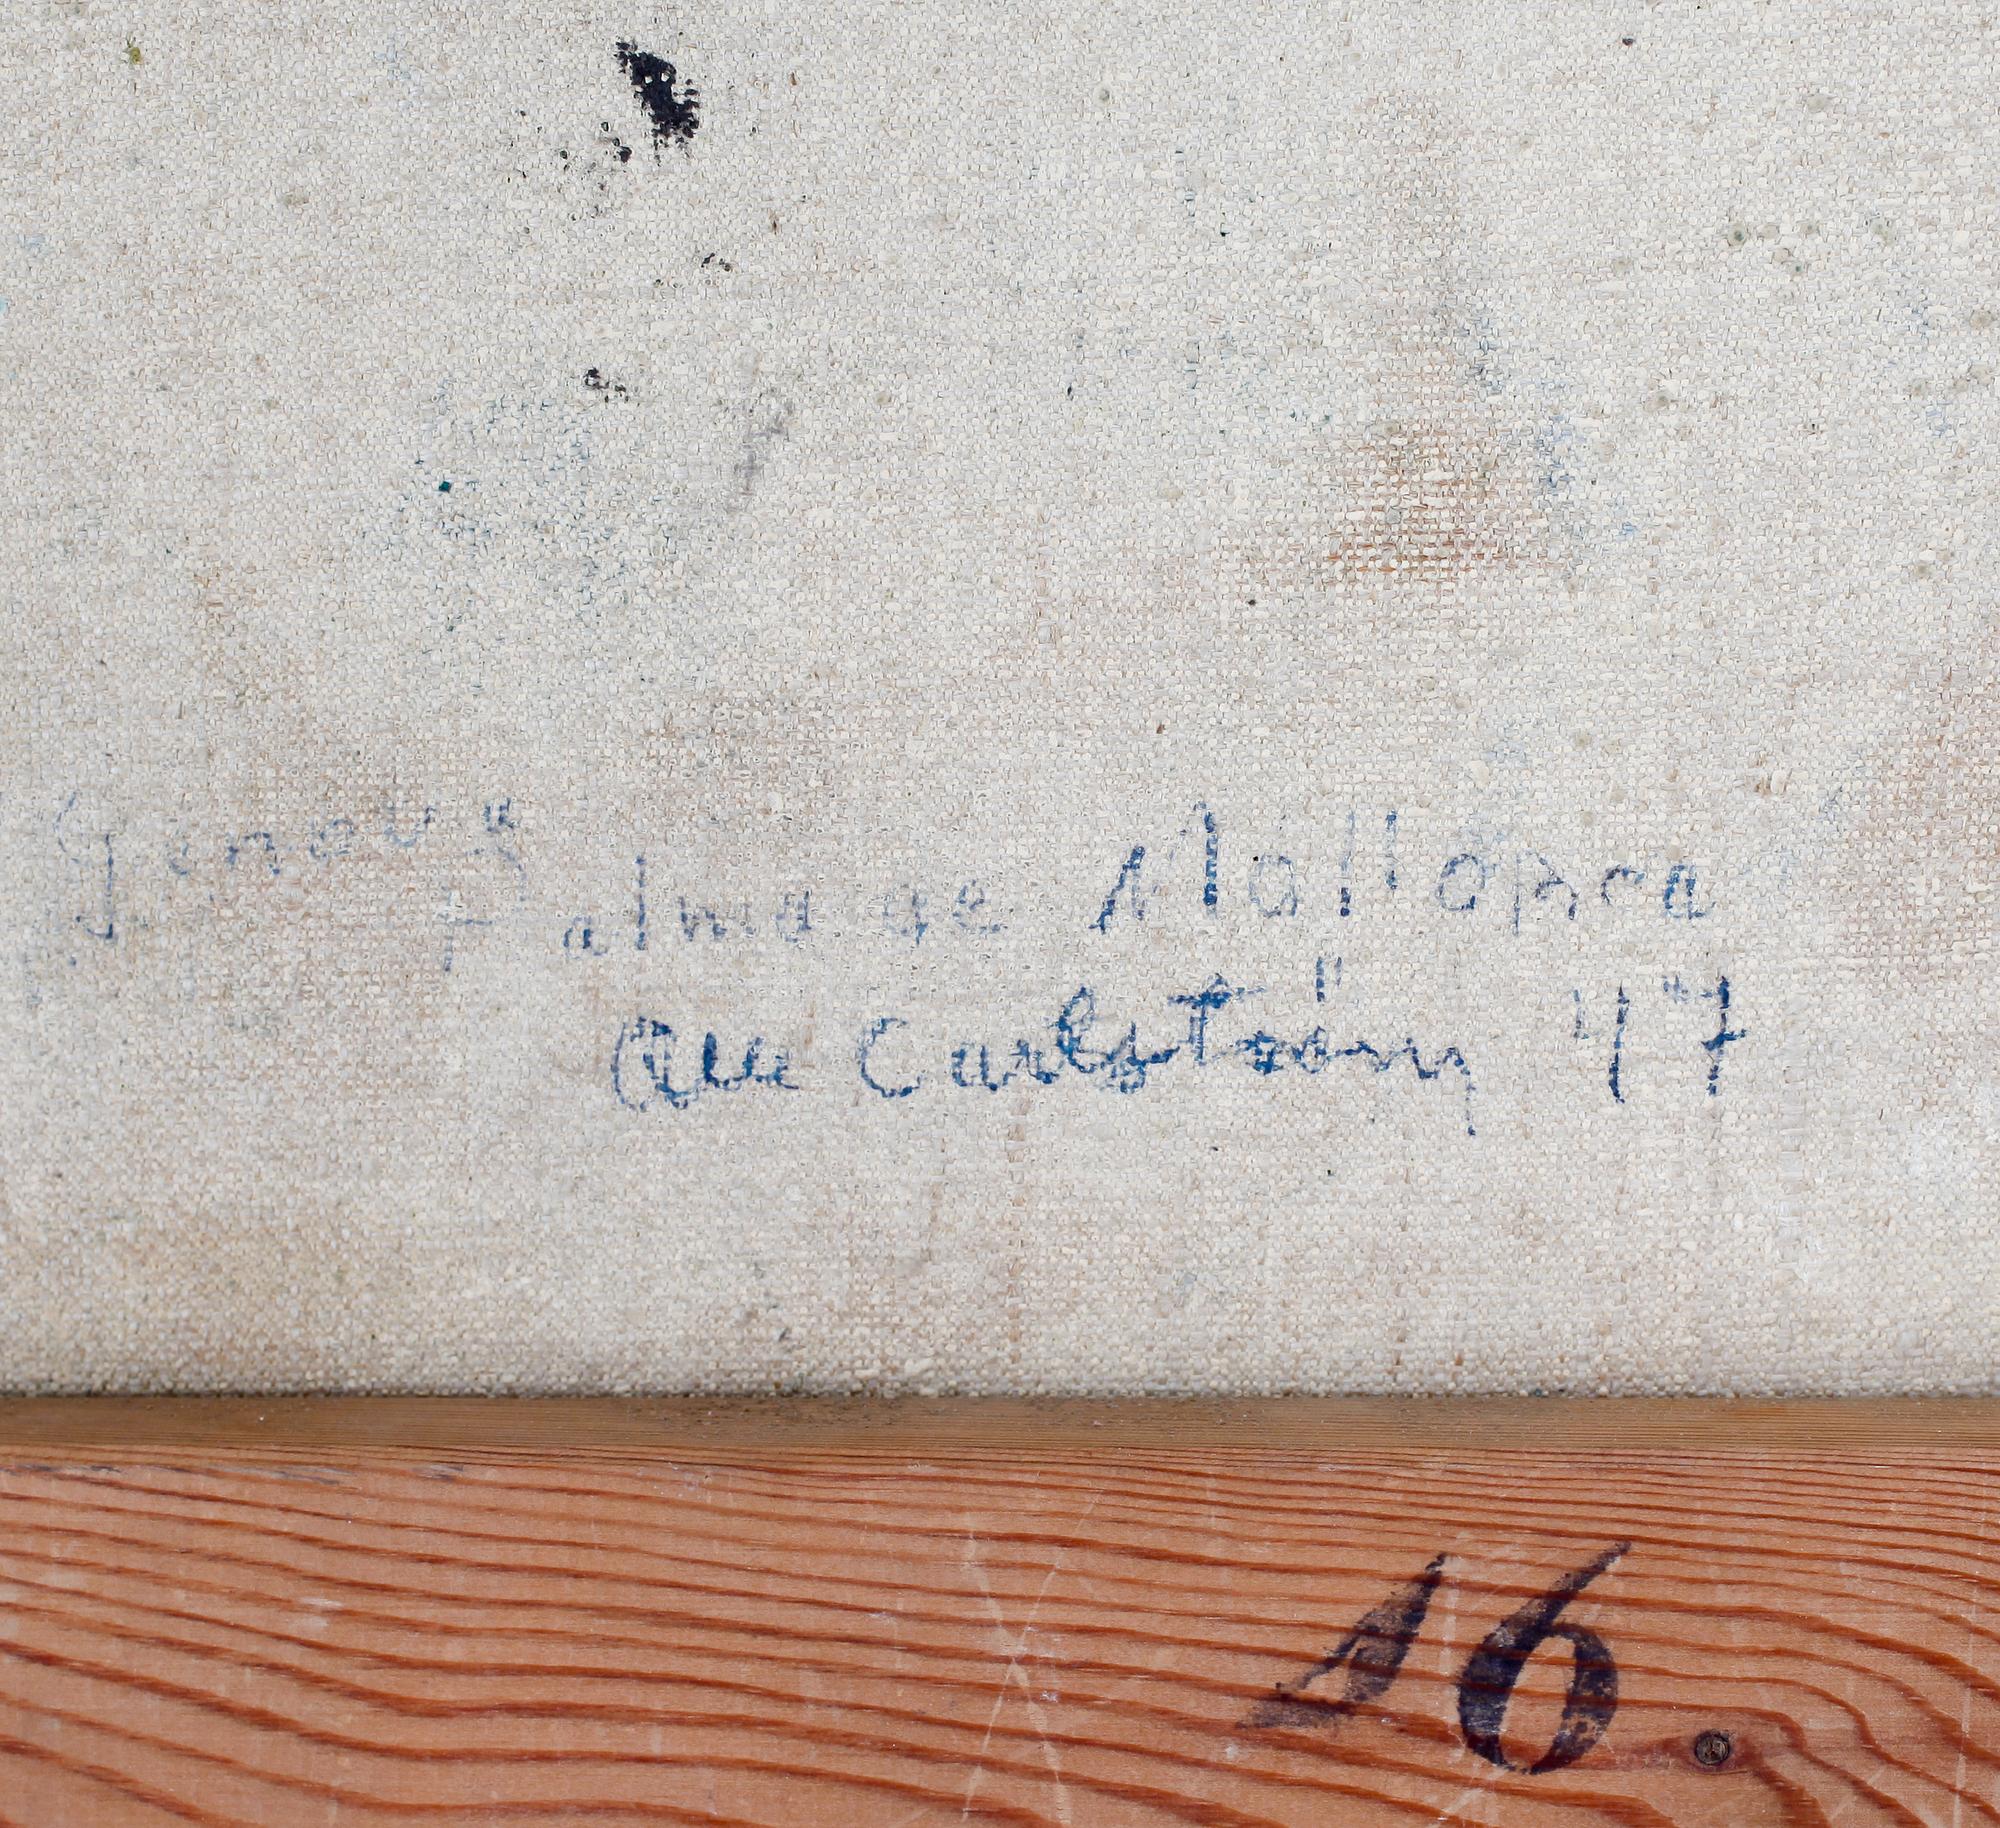 Genova
Palma de Mallorca
Olle Carlström 47
16